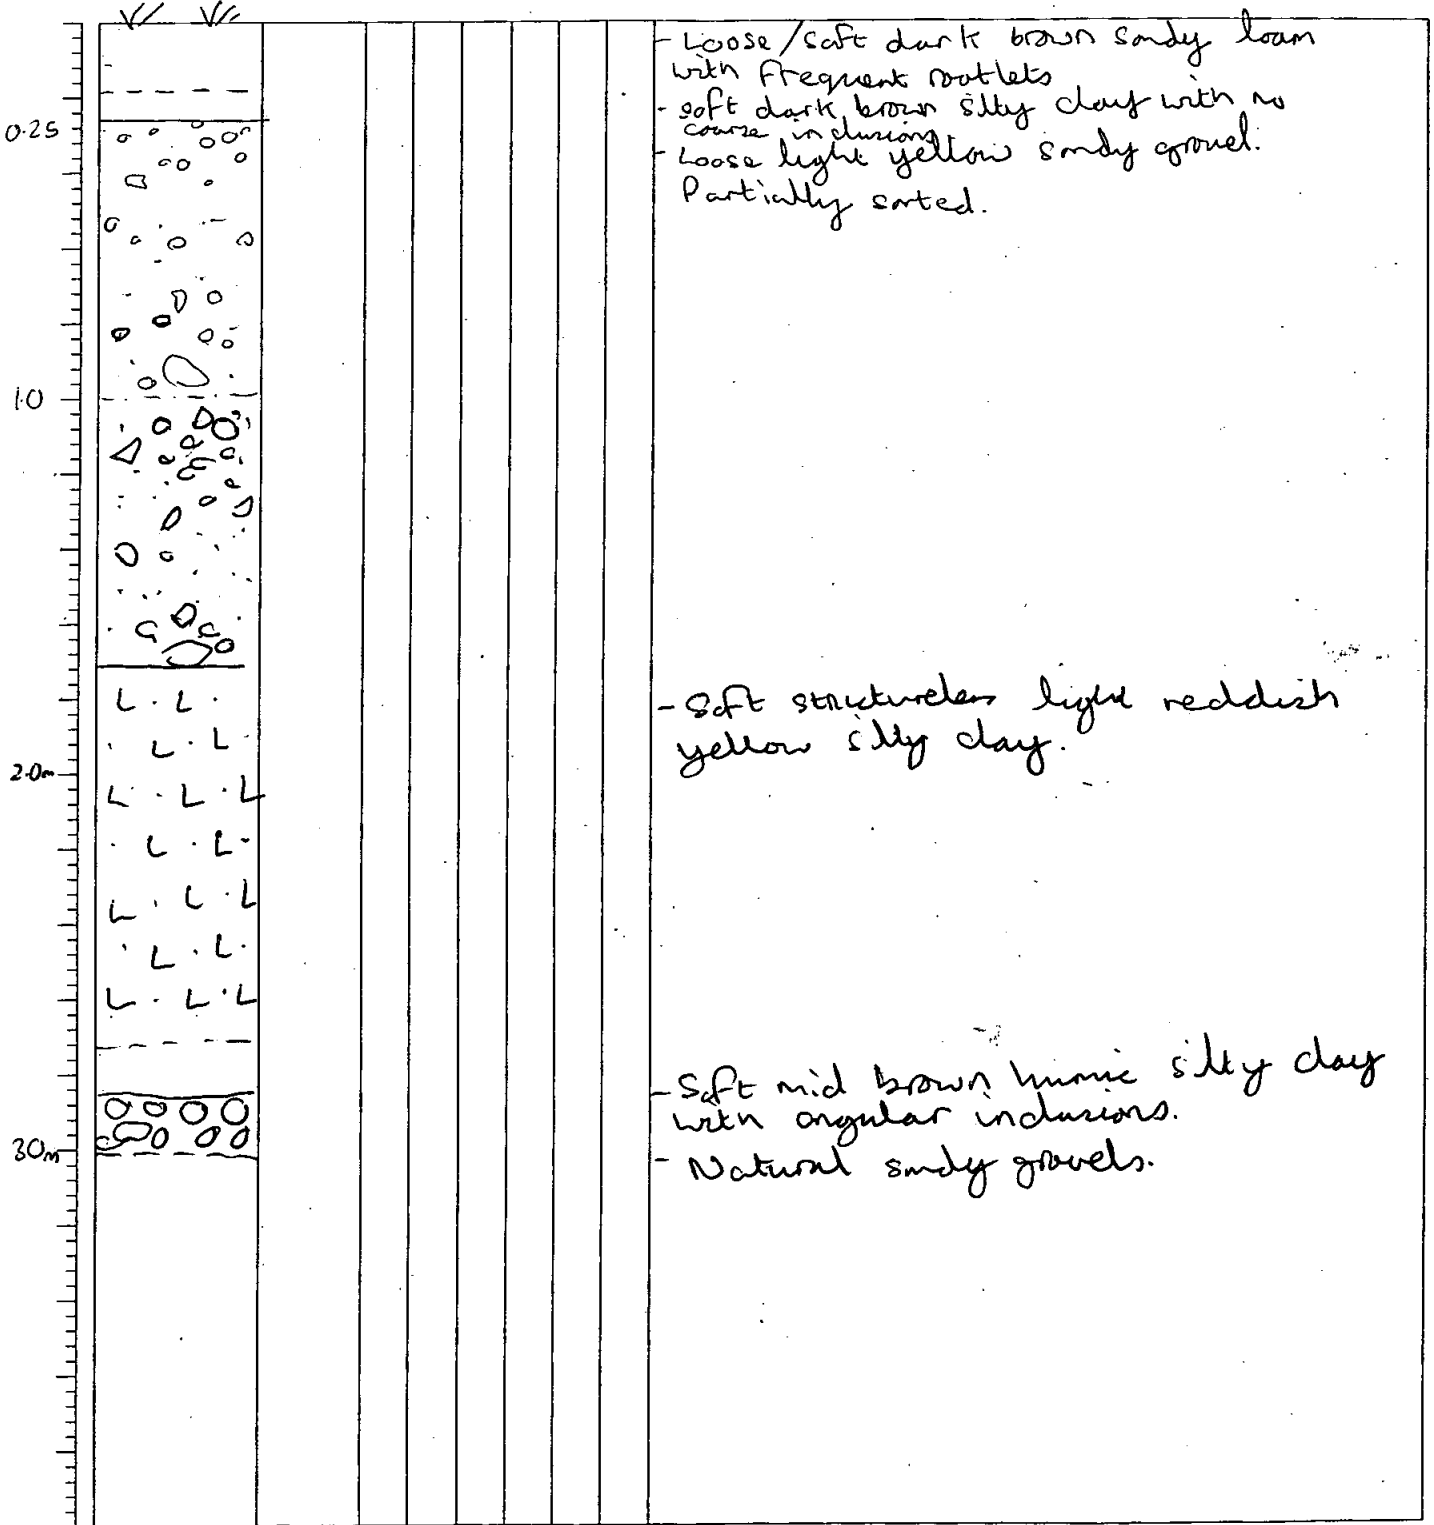 - Loose/soft dark brown sandy loam
with frequent rootlets
- soft dark brown silty clay with no
coarse inclusions.
0.25
- Loose light yellow sandy gravel.
Partially sorted.
1.0
- Soft structureless light reddish
yellow silty clay.
2.0m
- Soft mid brown humic silty clay
with angular inclusions.
3.0m
- Natural sandy gravels.